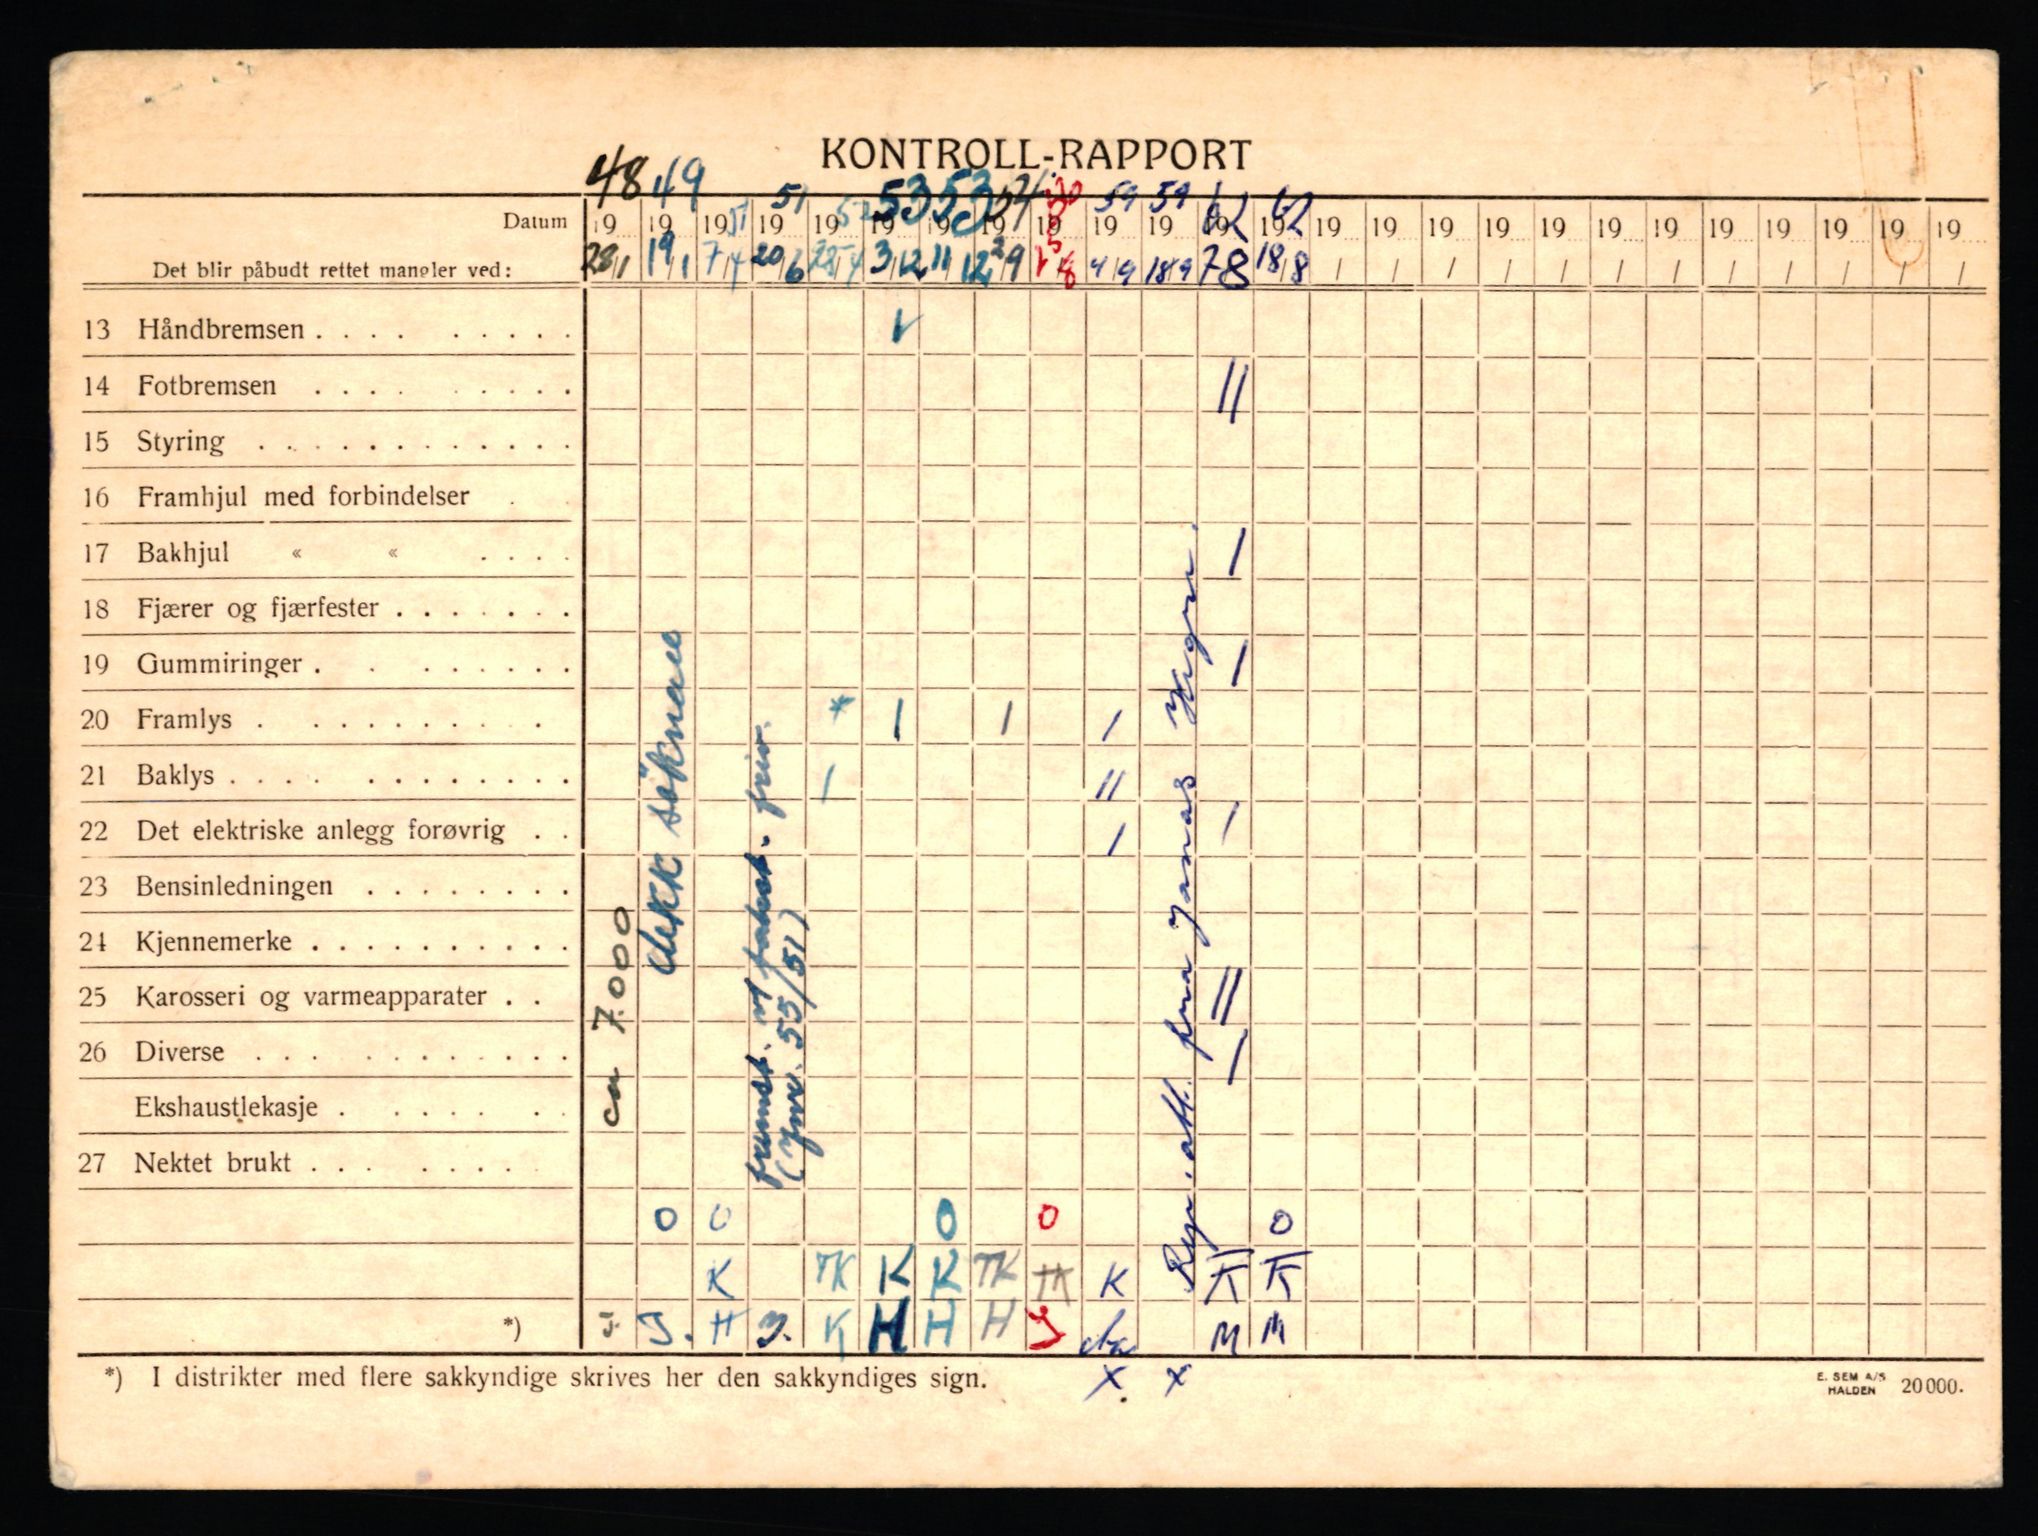 KONTROLL-RAPPORT
48 49 51 51 52 53 53 54 59 59 62 62
Datum 19 19 19 19 19 19 19 19 19 19 19 19 19 19 19 19 19 19 19 19 19 19 19 19 19
Det blir påbudt rettet mangler ved: 28/1 19/1 7/4 20/6 28/4 3/12 11/12 2/9 4/9 18/9 7/8 18/8 / / / / / / / / / / / /
13 Håndbremsen
14 Fotbremsen ||
15 Styring
16 Framhjul med forbindelser
17 Bakhjul « « |
18 Fjærer og fjærfester
19 Gummiringer |
20 Framlys * | | |
21 Baklys | ||
22 Det elektriske anlegg forøvrig | |
23 Bensinledningen
24 Kjennemerke
25 Karosseri og varmeapparater ||
26 Diverse |
Ekshaustlekasje
27 Nektet brukt
ca 7.000
søknaee
framst. friv.
55/51)
fra Jonas
O O O O O
K TK K K TK TK K K K
*) J. H J. K H H H M M
x. x
*) I distrikter med flere sakkyndige skrives her den sakkyndiges sign.
E. SEM A/S
HALDEN 20000.